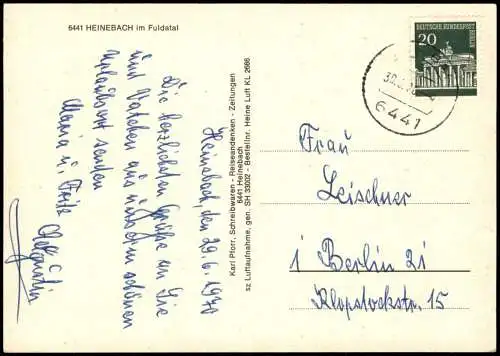 6441 HEINEBACH im Fuldatal
Heinebach, den 29.6.1970
Die herzlichsten Grüße an Sie
und Vatchen aus unserem schönen
Urlaubsort senden
Maria u. Fritz
Karl Pforr, Schreibwaren - Reiseandenken - Zeitungen
6441 Heinebach
sz Luftaufnahme, gen. SH 33002 - Bestellnr. Heine Luft KL 2686
DEUTSCHE BUNDESPOST
BERLIN
20
6441
Frau
Leischner
1 Berlin 21
Klopstockstr. 15